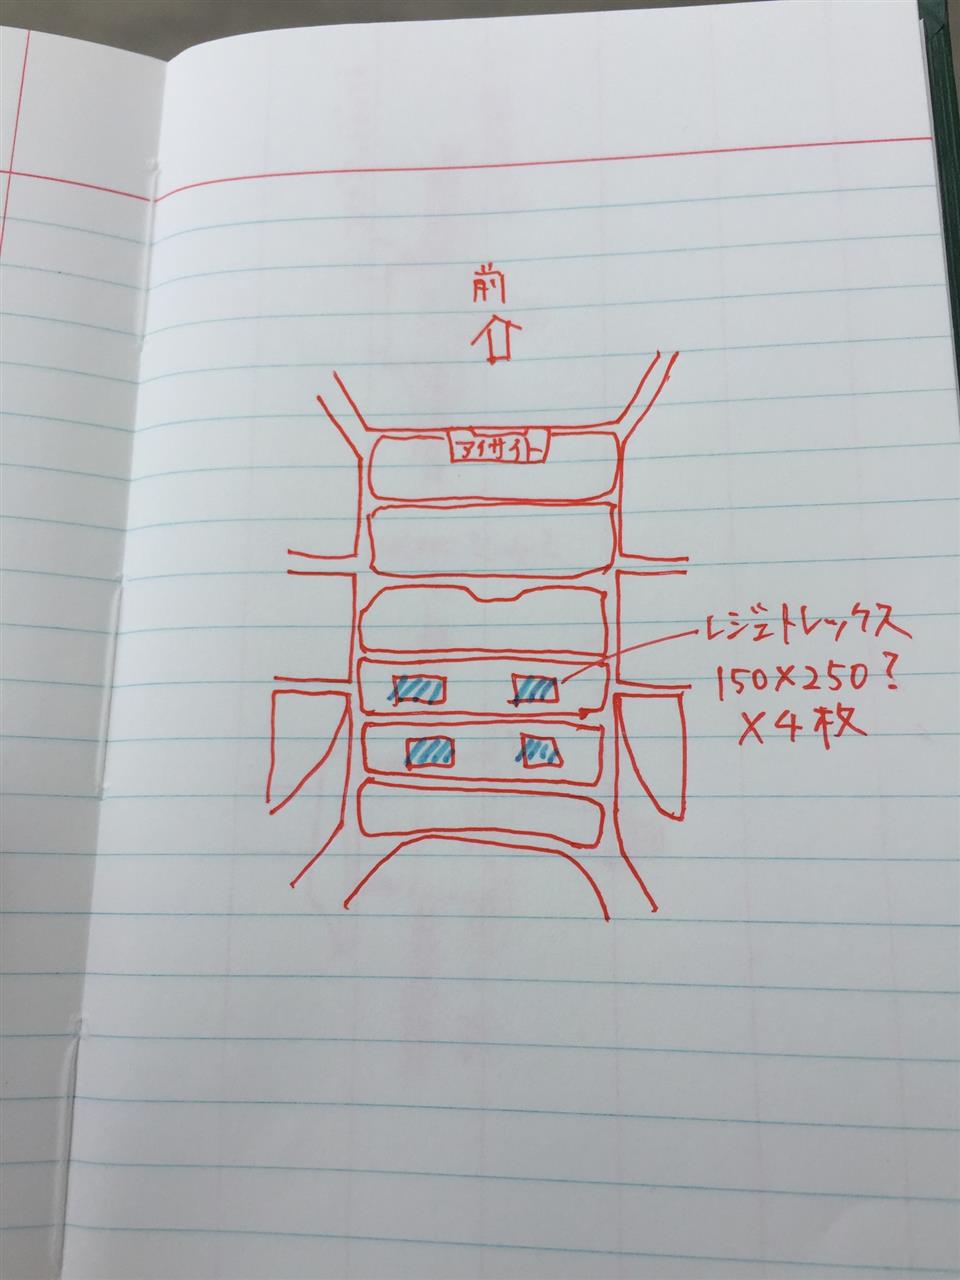 前
アイサイト
レジェトレックス
150×250?
×4枚